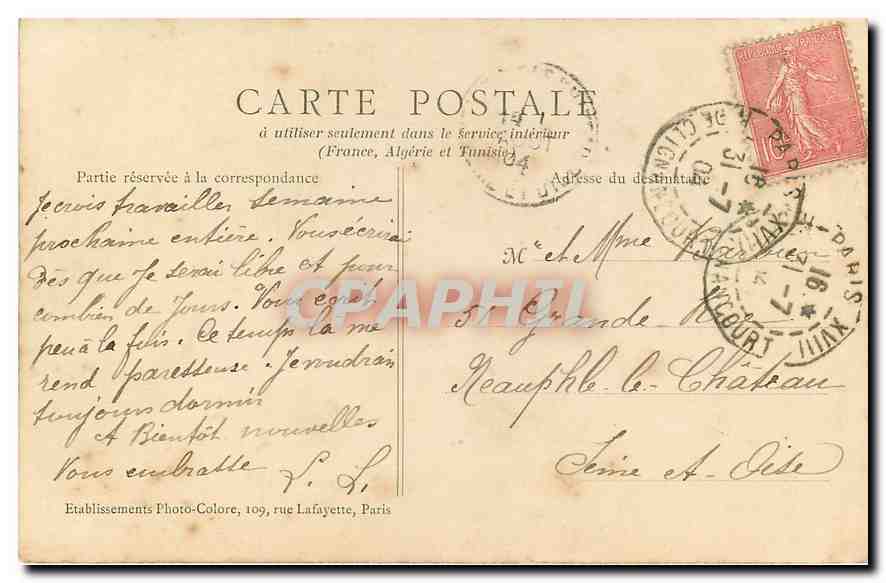 CARTE POSTALE
à utiliser seulement dans le service intérieur
(France, Algérie et Tunisie)
Partie réservée à la correspondance
Adresse du destinataire
Je crois travailler semaine
prochaine entière. Vous écrirai
dès que Je serai libre et pour
combien de Jours. Vous
peu à la fois. Ce temps la me
rend paresseuse. Je voudrais
toujours dormir
A Bientôt nouvelles
Vous embrasse L. L.
Mr et Mme
51 Grande Rue
Neauphle-le-Château
Seine et Oise
Etablissements Photo-Colore, 109, rue Lafayette, Paris
REPUBLIQUE FRANÇAISE
10
PARIS XVIII
R. DE CLIGNANCOURT
31-7
04
PARIS XVIII
16
31-7
ANCOURT
04
CPAPHIL